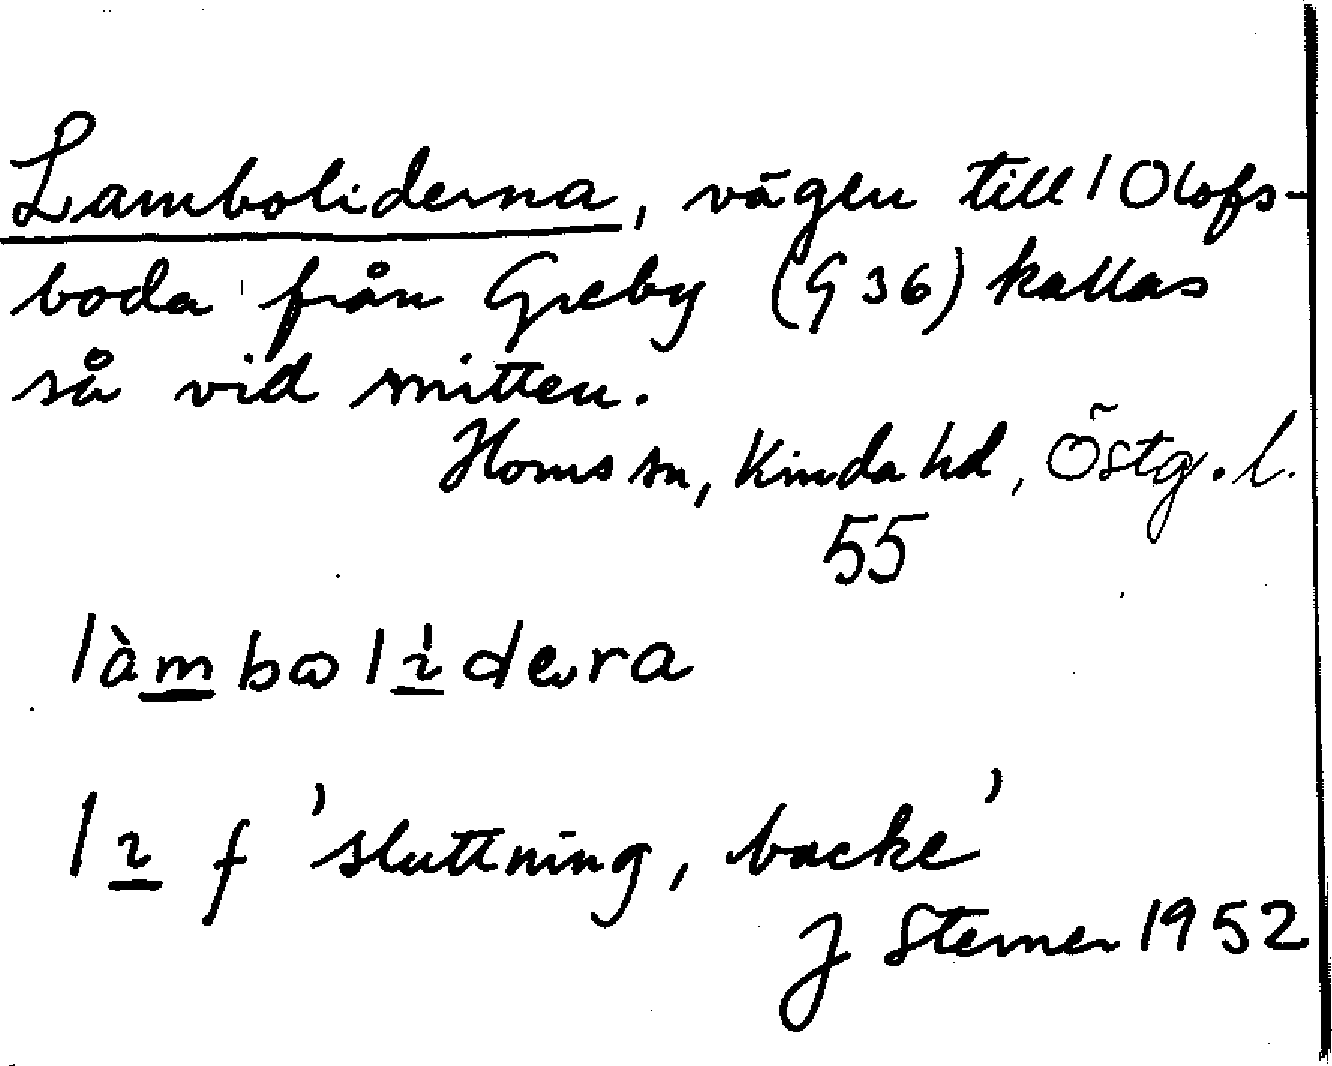 Lamboliderna, vägen till Olofs-
boda från Greby (G 36) kallas
så vid mitten.
Horns sn, Kinda hd, Östg. l.
55
làmbolìdera
lɩ f 'sluttning, backe'
J Sterner 1952